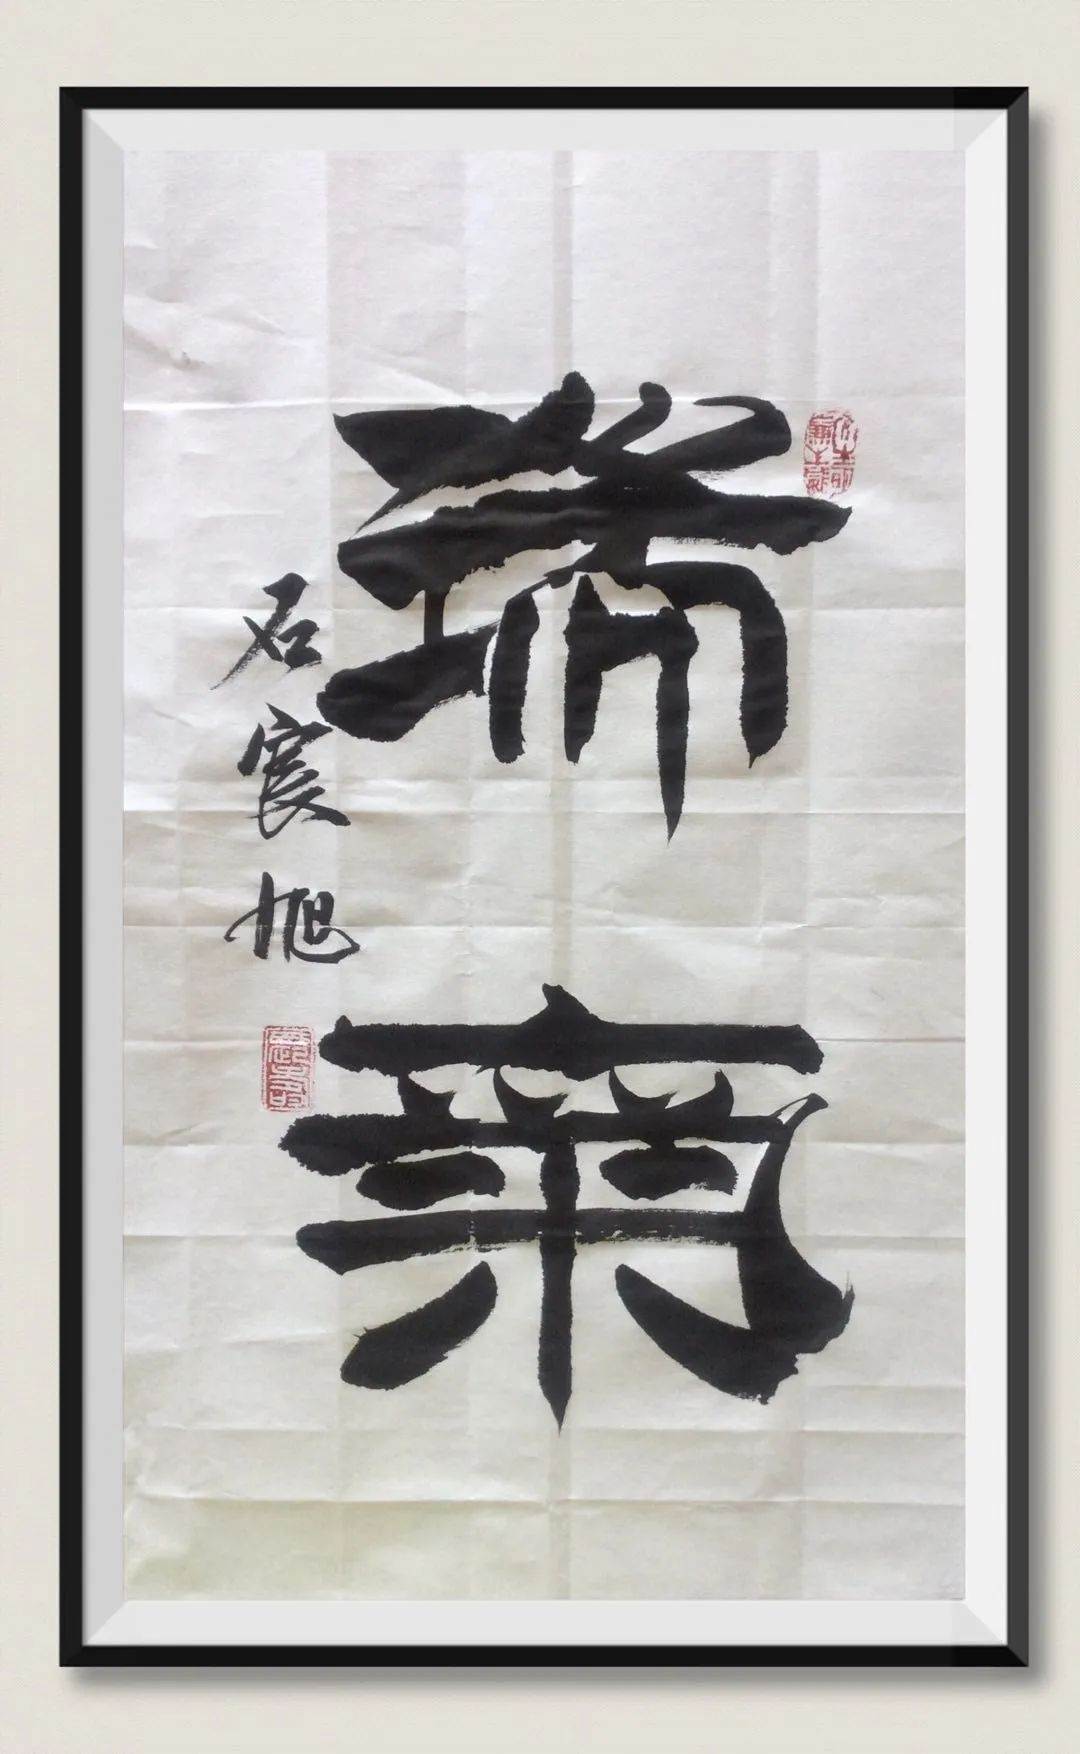 瑞氣
石宸旭